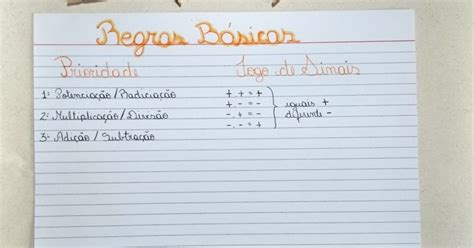 Regras Básicas
Prioridade
Jogo de Sinais
1º Potenciação / Radiciação
2º Multiplicação / Divisão
3º Adição / Subtração
+ + = +
+ . - = -
- . + = -
- . - = +
iguais +
diferente -